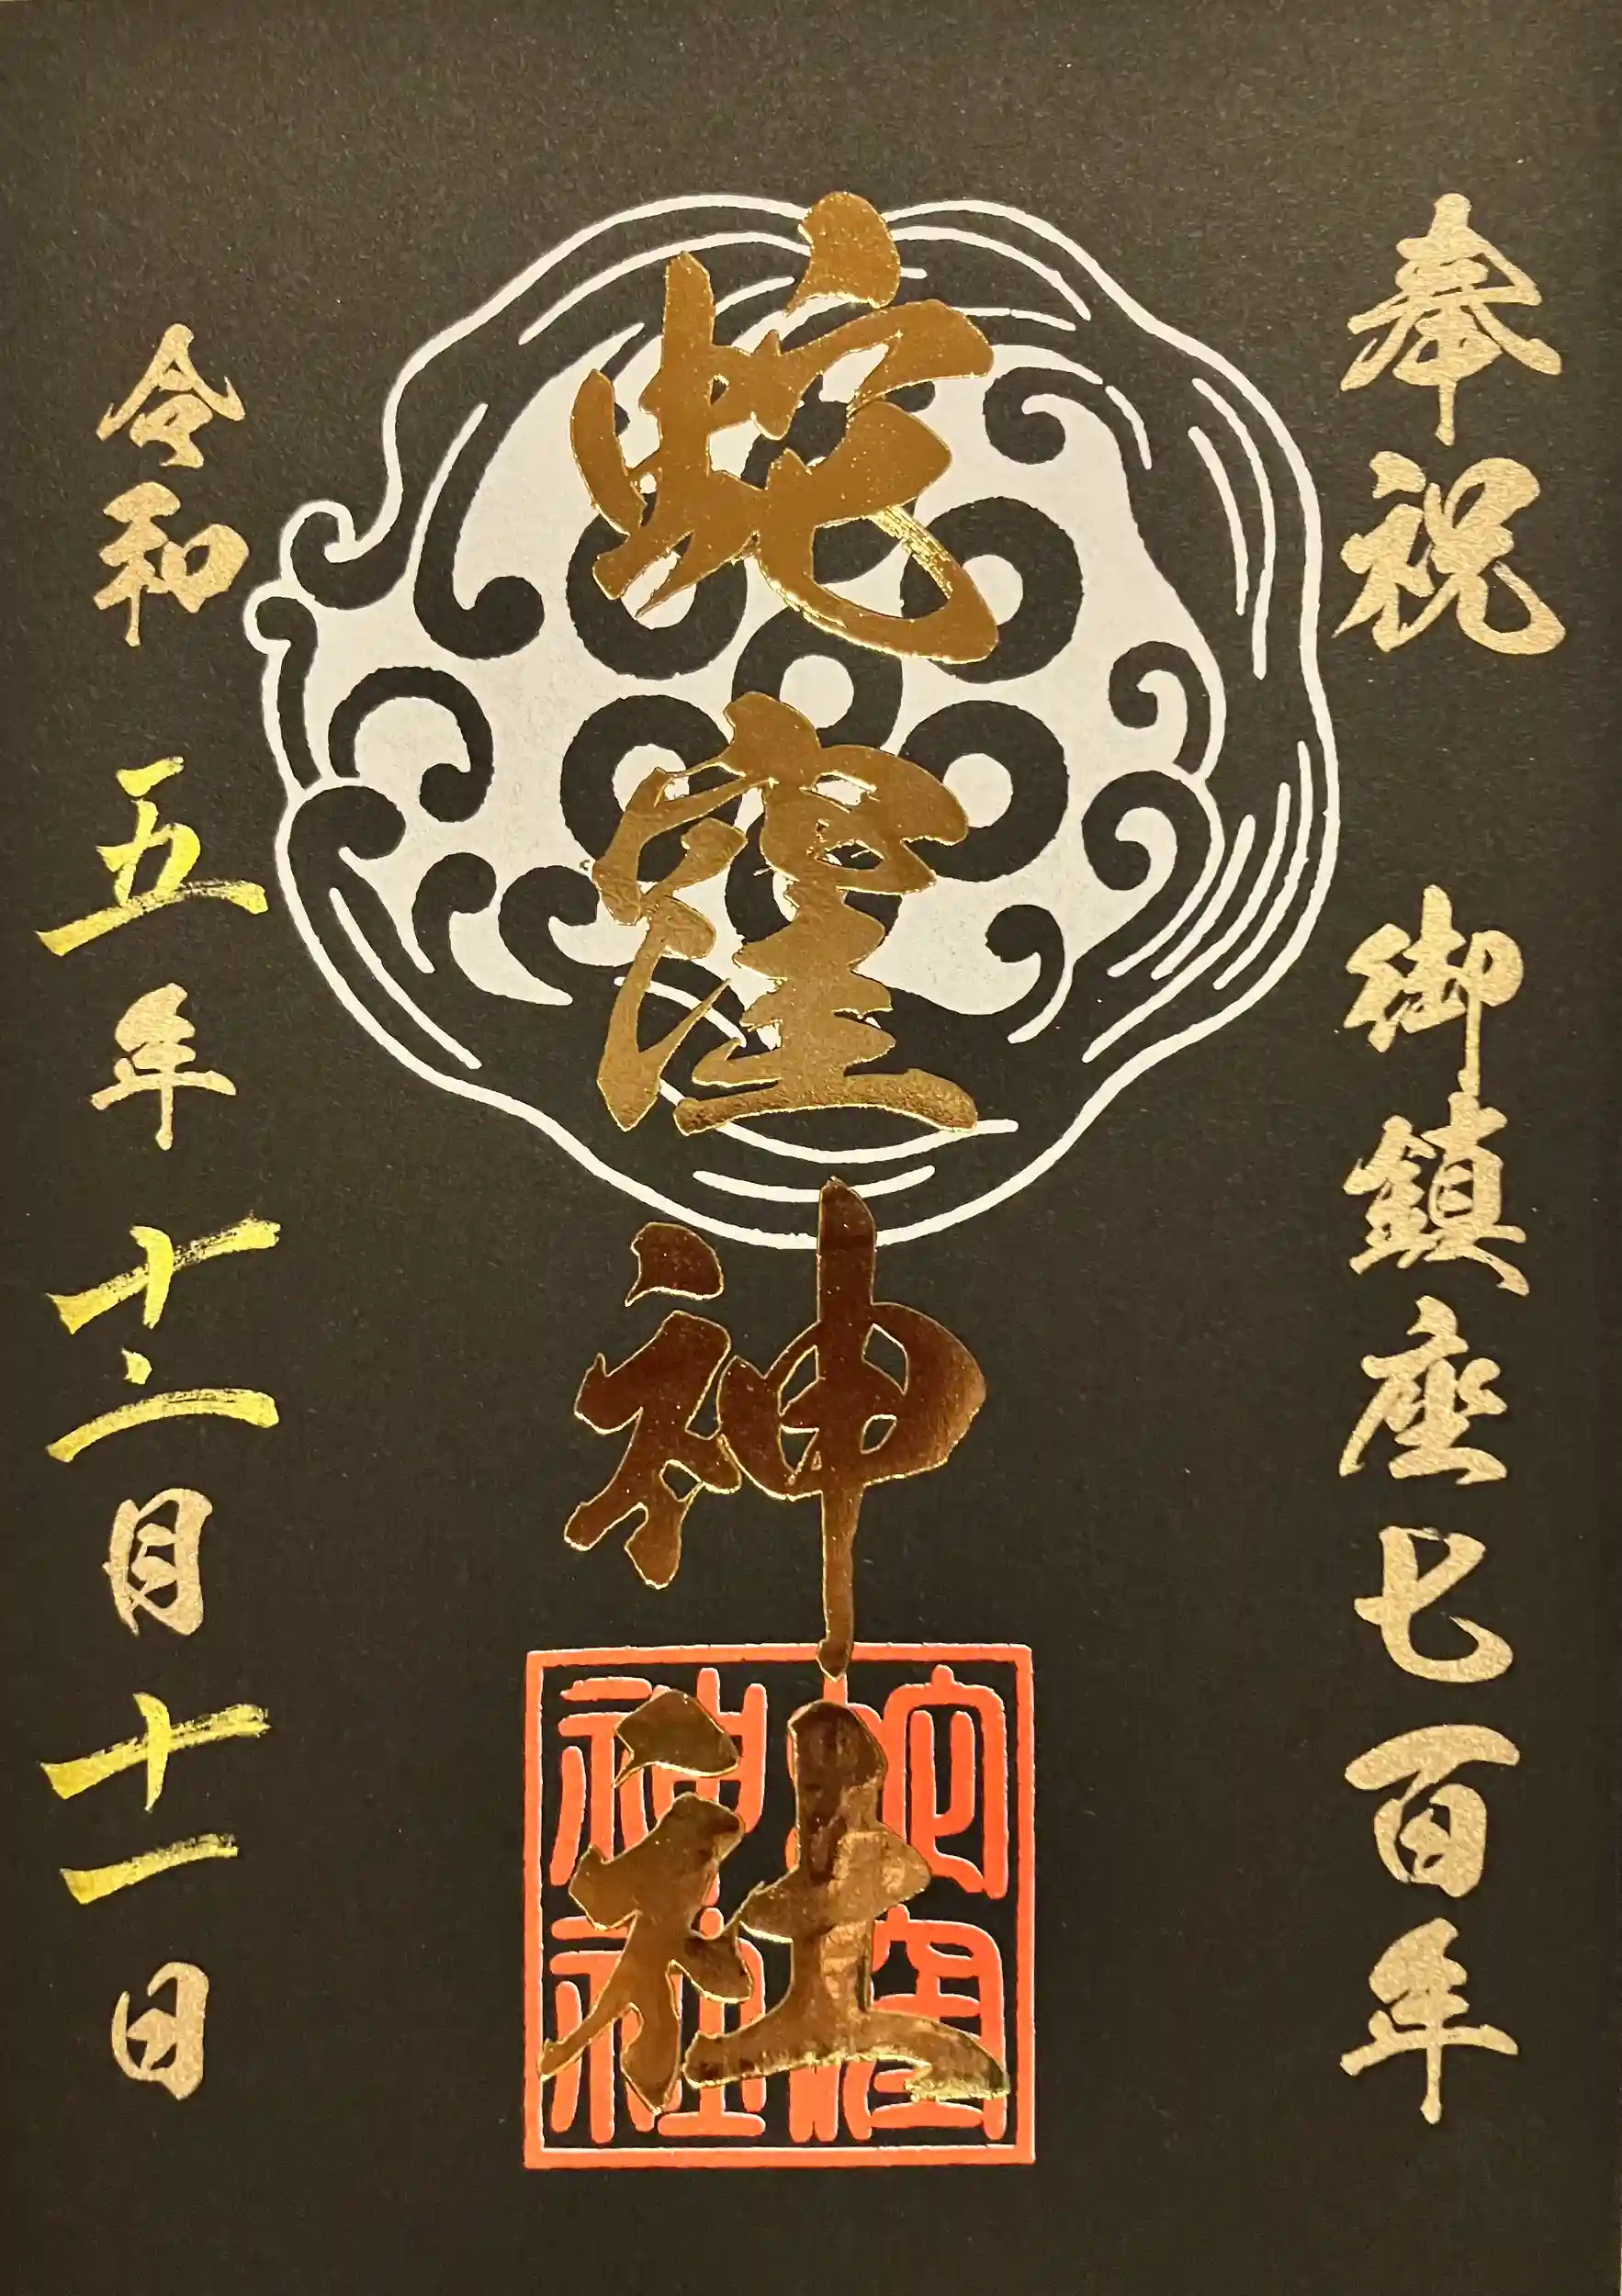 奉祝 御鎮座七百年
蛇窪神社
蛇窪神社
令和五年十二月十一日